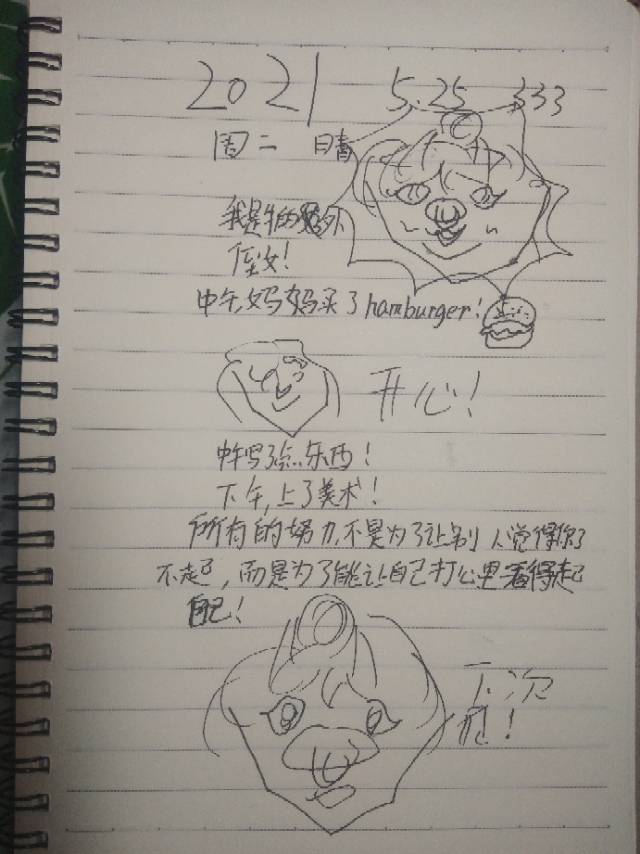 2021 5.25 333
周二 晴
我是牛的
侄女!
中午,妈妈买了hamburger!
开心!
中午写了点东西!
下午,上了美术!
所有的努力,不是为了让别人觉得你了
不起,而是为了能让自己打心里看得起
自己!
下次
见!